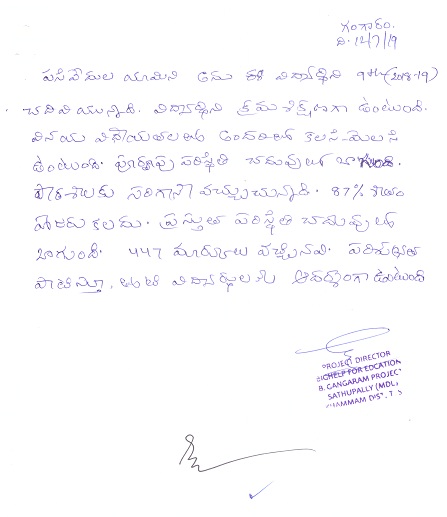 గంగారం.
ది. 12/7/19
పసివేదుల యామిని అను ఈ విద్యార్థిని 9th (2018-19)
చదివి యున్నది. విద్యార్థిని క్రమశిక్షణగా ఉంటుంది.
వినయ విధేయతలతో అందరితో కలసి-మెలసి
ఉంటుంది. పూర్వపు పరిస్థితి చదువులో బాగుంది.
పాఠశాలకు సరిగానే వచ్చుచున్నది. 87% శాతం
హాజరు కలదు. ప్రస్తుత పరిస్థితి చదువులో
బాగుంది. 447 మార్కులు వచ్చినవి. పరిశుభ్రత
పాటిస్తూ, తోటి విద్యార్థులకు ఆదర్శంగా ఉంటుంది
PROJECT DIRECTOR
HELP FOR EDCATION
B. GANGARAM PROJECT
SATHUPALLY (MDL)
KHAMMAM DIST. T.S